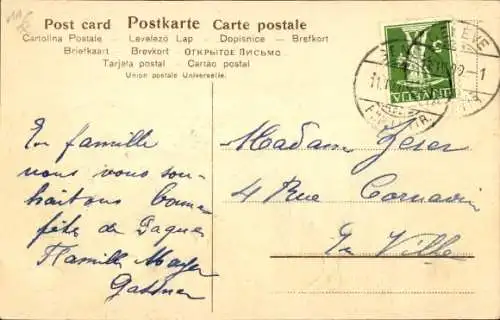 Post card Postkarte Carte postale
Cartolina Postale - Levelező Lap - Dopisnice - Brefkort
Briefkaart - Brevkort - ОТКРЫТОЕ ПИСЬМО
Tarjeta postal - Cartáo postal
Union postale Universelle.
HELVETIA
En famille
nous vous sou-
haitons bonne
fête de Paques
Famille Mayer
Gassner
Madame Zeser
4 Rue Cornavin
En Ville